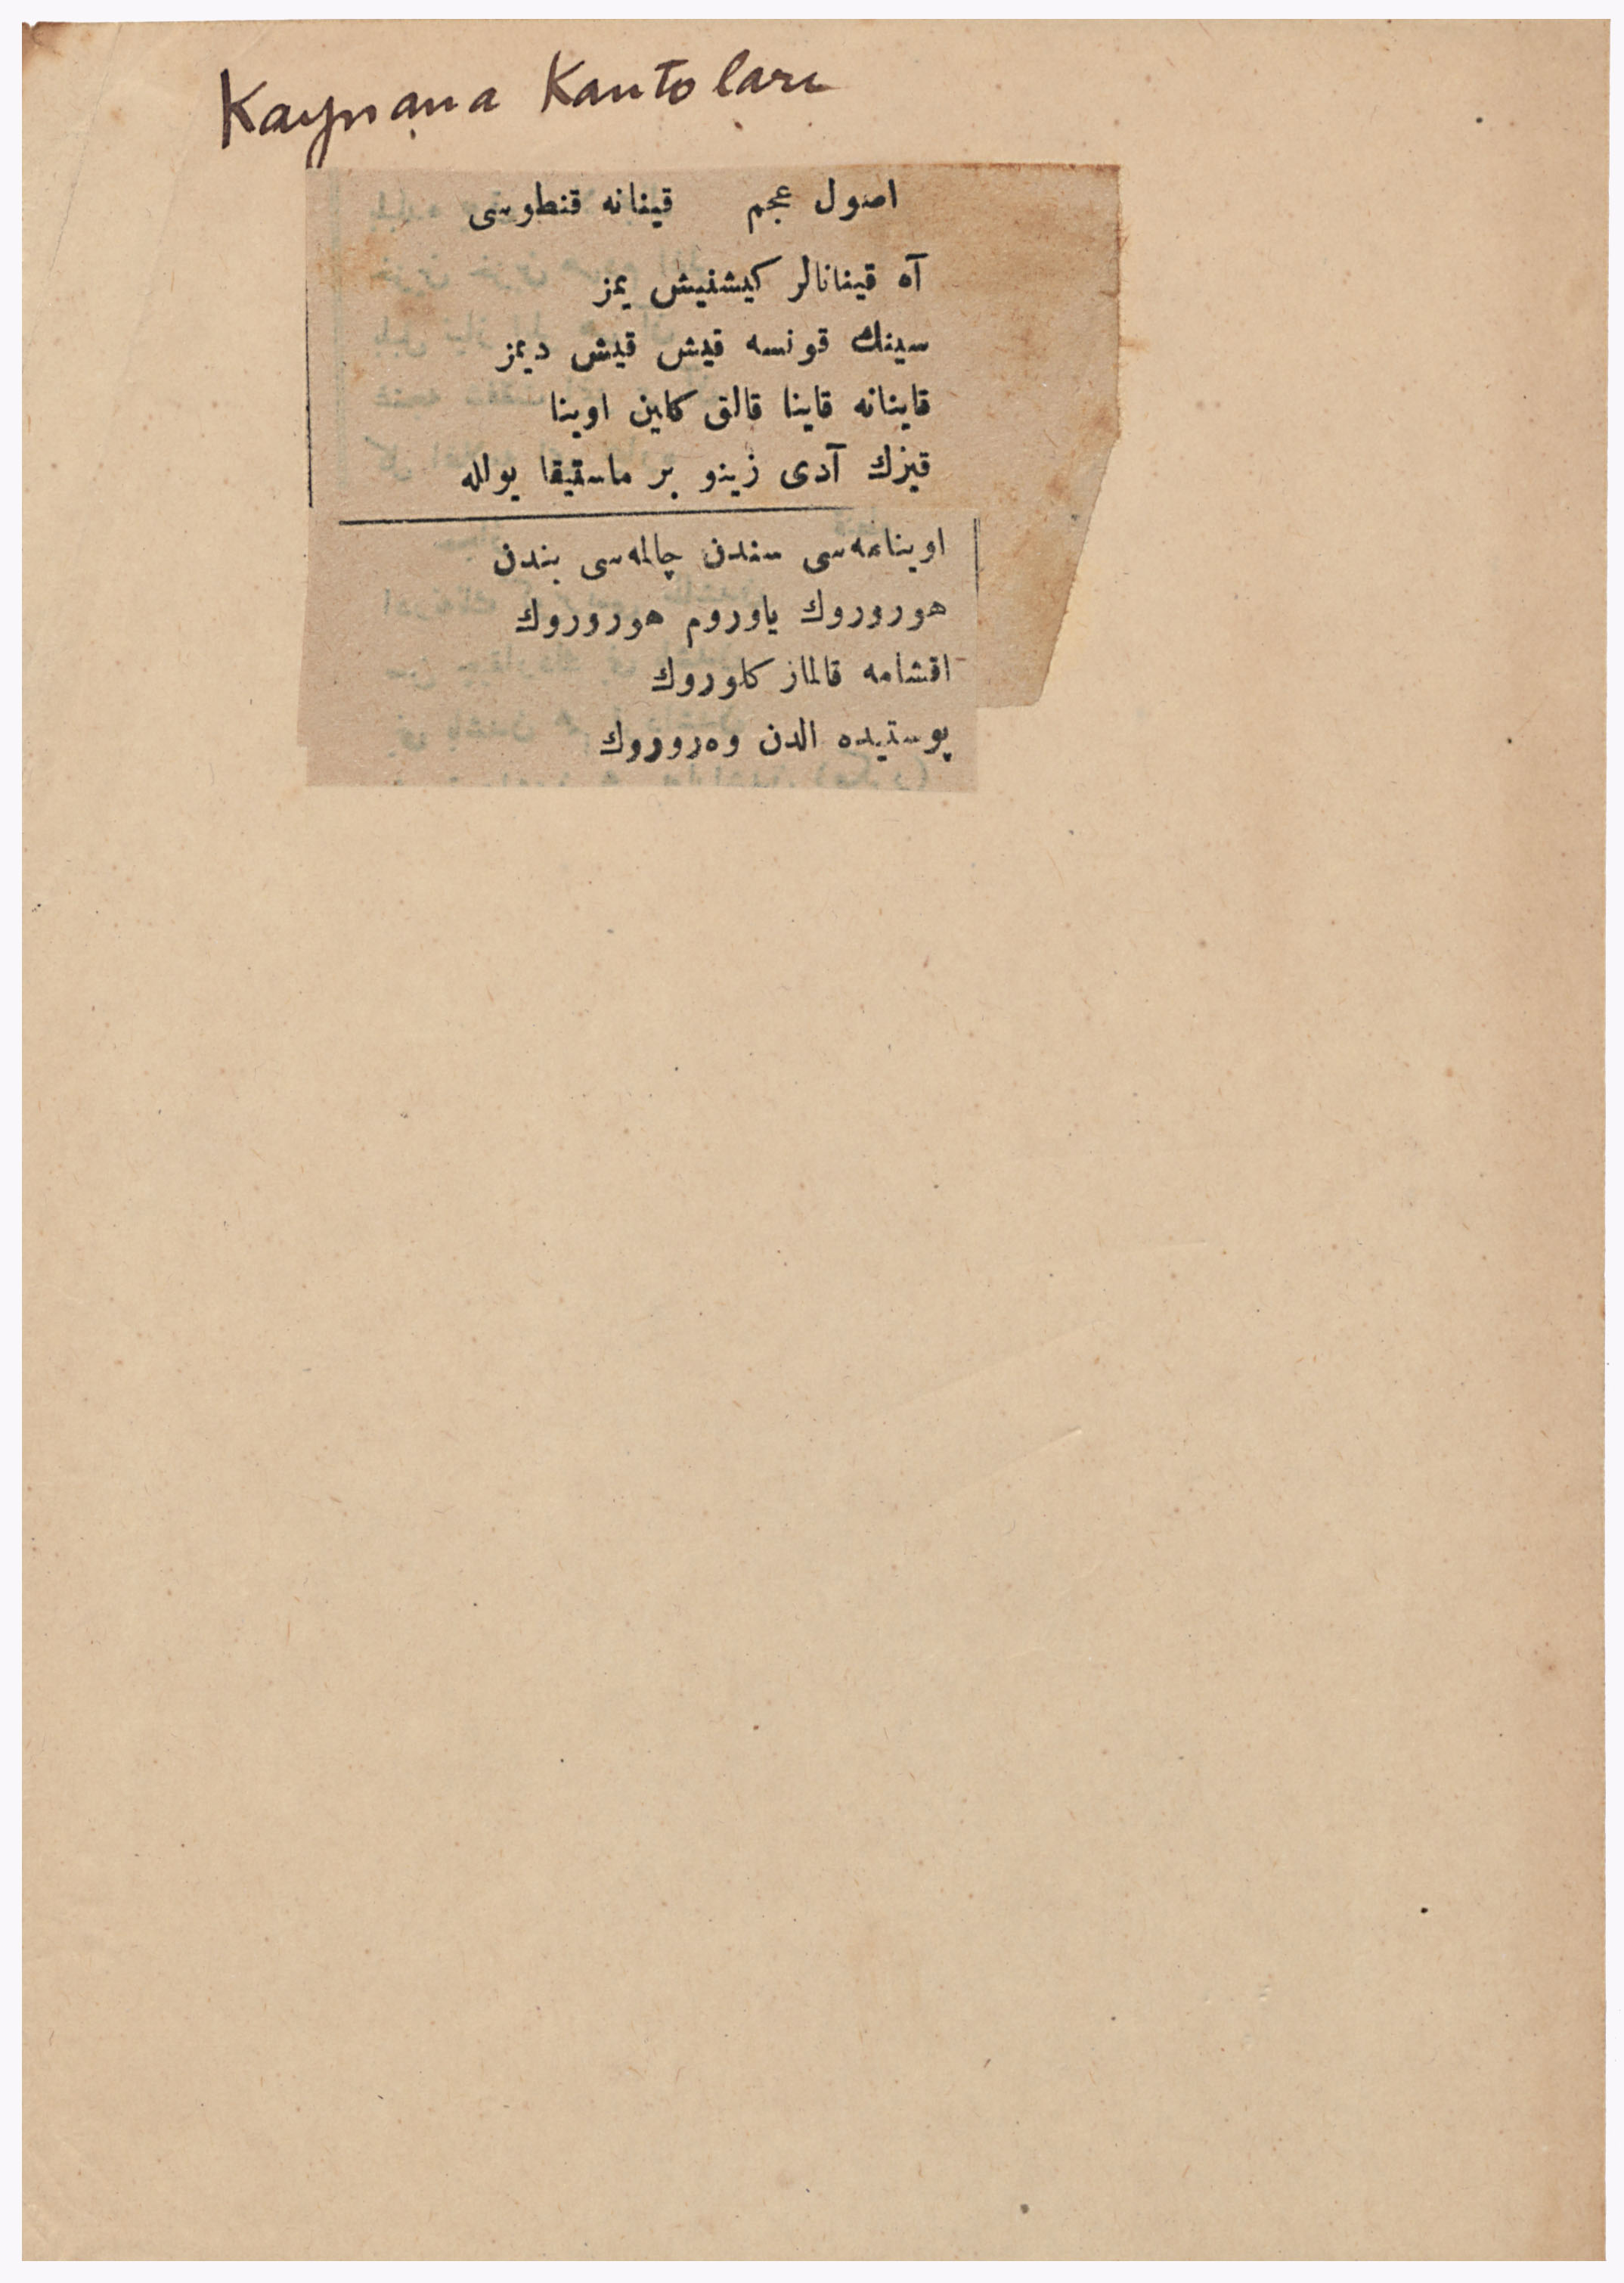 Kaynana Kantoları
اصول عجم قینانه قنطوسی
آه قینانالر کیشنیش یمز
سینك قونسه قیش قیش دیمز
قاینانه قاینا قالق کلین اوینا
قیزك آدی زینو بر ماستیقا یوالله
اوینامه‌سی سندن چالمه‌سی بندن
هوروروك یاوروم هوروروك
اقشامه قالماز کلوروك
پوستیده الدن وه‌روروك